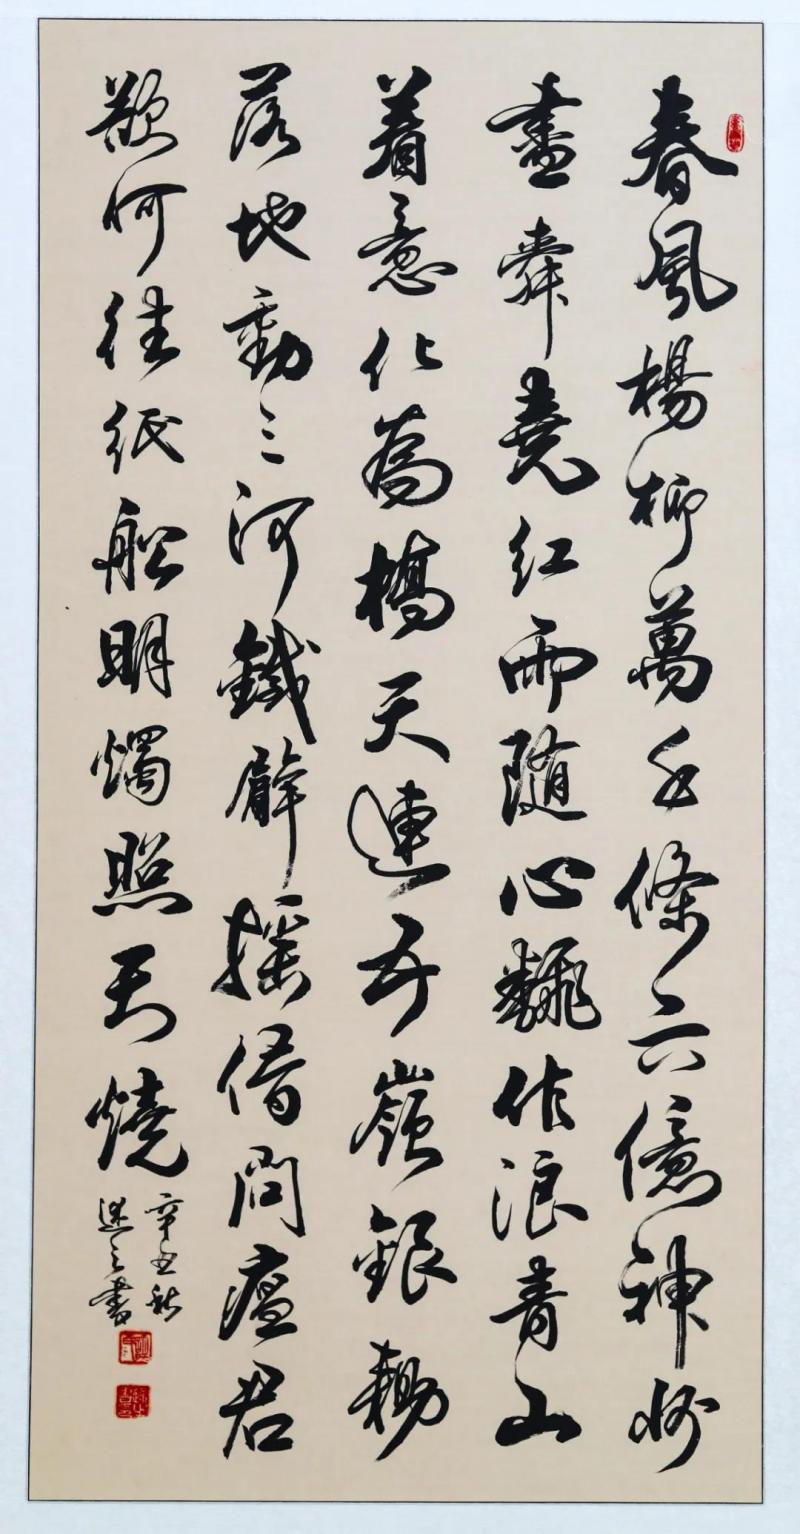 春風楊柳萬千條六億神州
盡舜堯紅雨随心飜作浪青山
着意化為橋天連五嶺銀耡
落地動三河鐵臂摇借問瘟君
欲何往紙船明燭照天燒
辛丑秋
之書